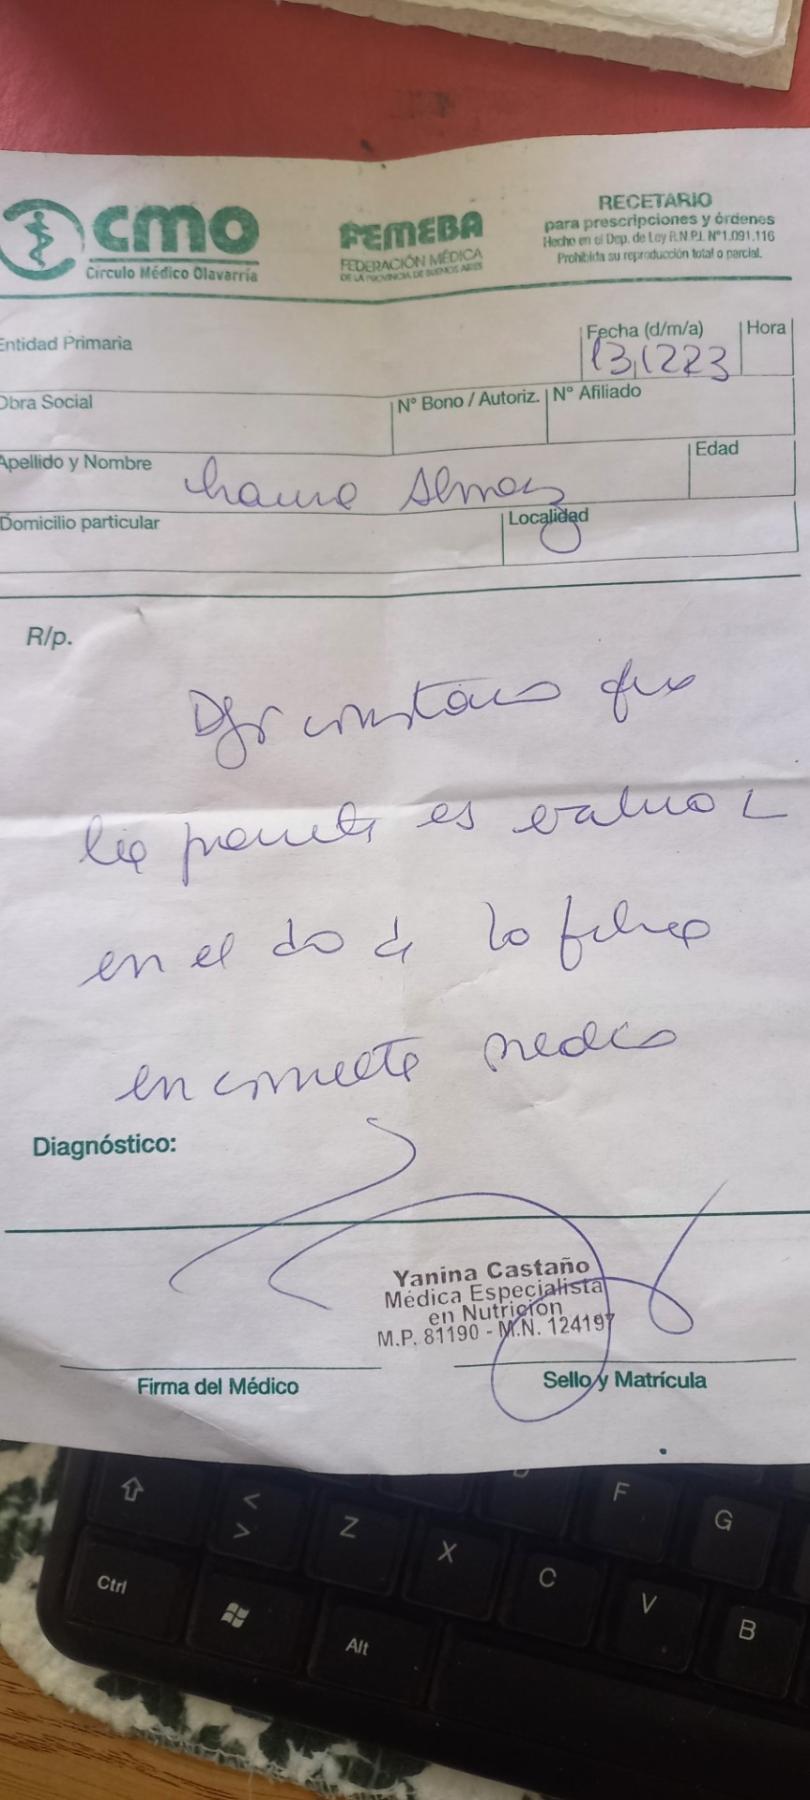 cmo
Círculo Médico Olavarría
FEMEBA
FEDERACIÓN MÉDICA
DE LA PROVINCIA DE BUENOS AIRES
RECETARIO
para prescripciones y órdenes
Hecho en el Dep. de Ley R.N.P.I. Nº1.091.116
Prohibida su reproducción total o parcial.
Entidad Primaria
Fecha (d/m/a) Hora
13/12 23
Obra Social Nº Bono / Autoriz. Nº Afiliado
Apellido y Nombre Edad
Domicilio particular Localidad
R/p.
constancia que
la paciente es evaluó
en el día de la fecha
en consulta médica
Diagnóstico:
Yanina Castaño
Médica Especialista
en Nutrición
M.P. 81190 - M.N. 124197
Firma del Médico Sello y Matrícula
F
G
< >
Z
X
C
V
B
Ctrl
Alt